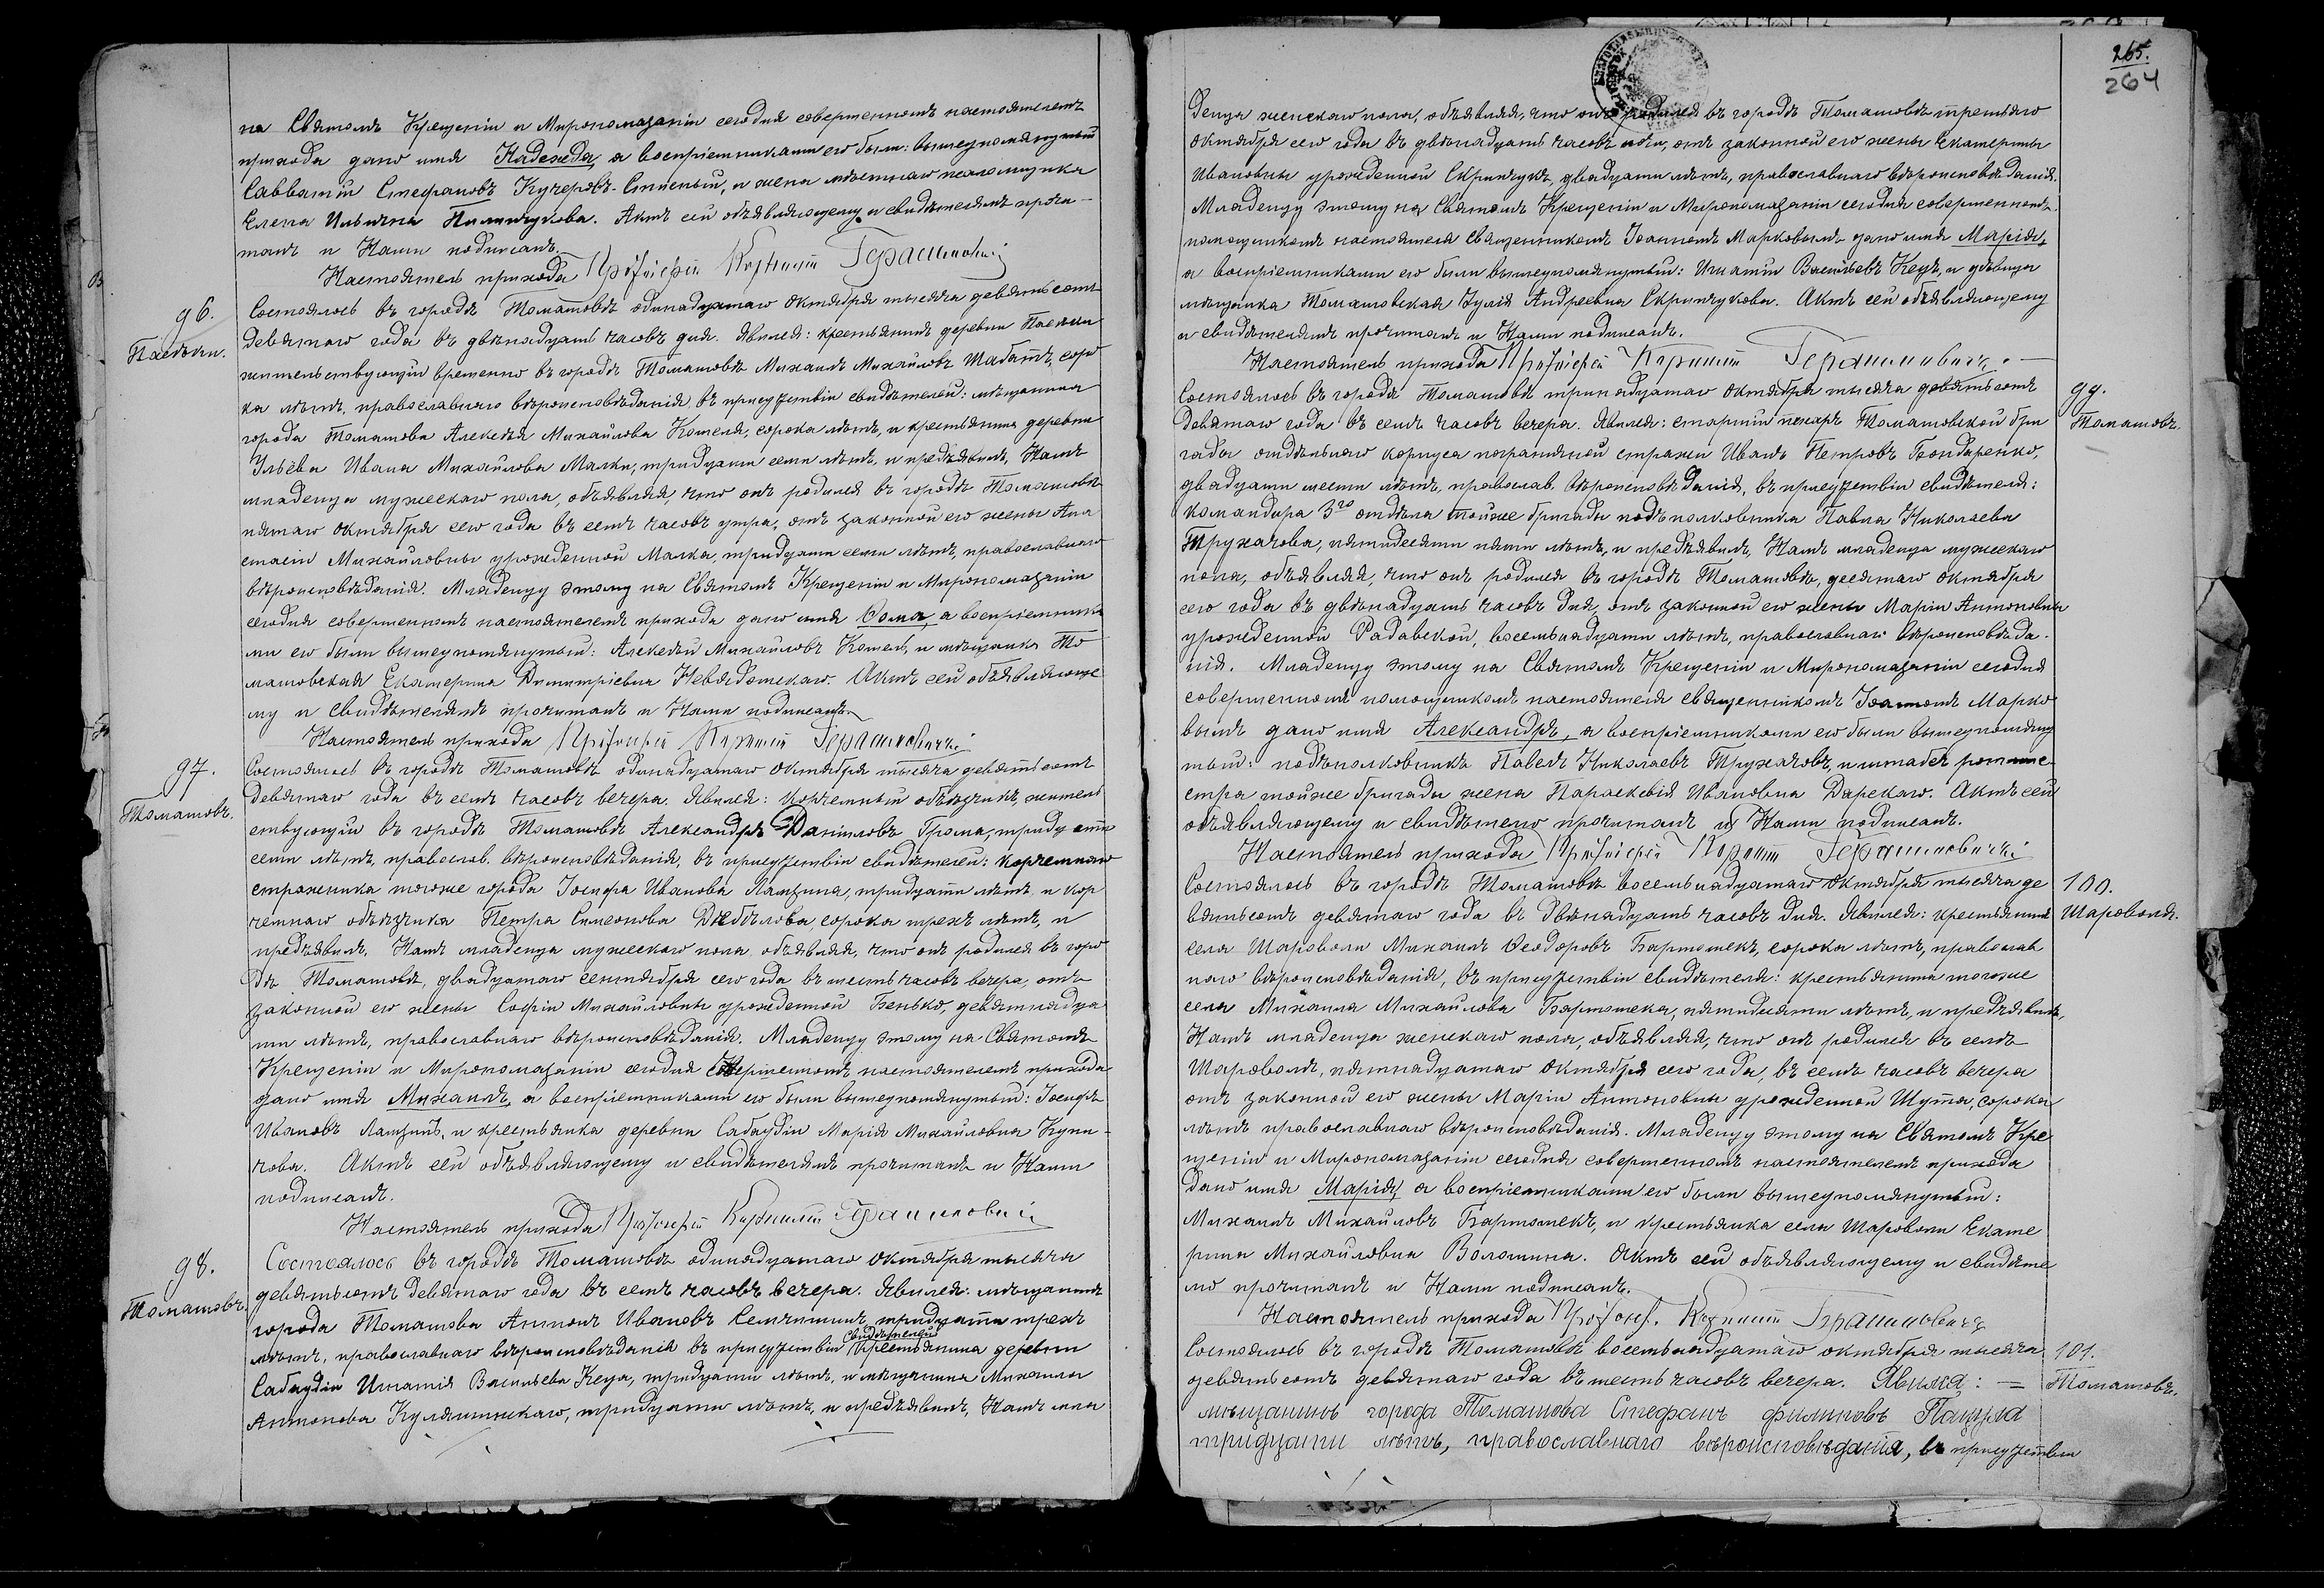 на Святомъ Крещеніи и Мѵропомазаніи сегодня совершенномъ настоятелемъ
прихода дано имя Надежда, а воспріемниками его были: вышеупомянутый
Савватій Стефановъ Кучеровъ-Степный, и жена мѣстнаго псаломщика
Елена Ильична Пилипчукова. Актъ сей объявляющему и свидѣтелямъ прочи-
танъ и Нами подписанъ.
Настоятель прихода Протоіерей Корнилій Герашиновичъ
96.
Пасѣки.
Состоялось въ городѣ Томашовѣ одинадцатаго октября тысяча девятьсотъ
девятаго года въ двѣнадцать часовъ дня. Явился: крестьянинъ деревни Пасѣки
жительствующій временно въ городѣ Томашовѣ Михаилъ Михайловъ Шабатъ, соро
ка лѣтъ, православнаго вѣроисповѣданія, въ присутствіи свидѣтелей: мѣщанина
города Томашова Алексѣя Михайлова Котеля, сорока лѣтъ, и крестьянина деревни
Ульёва Ивана Михайлова Малки, тридцати семи лѣтъ, и предъявилъ Намъ
младенца мужескаго пола, объявляя, что онъ родился въ городѣ Томашовѣ
пятаго октября сего года въ семь часовъ утра, отъ законной его жены Ана
стасіи Михайловны урожденной Малка, тридцати семи лѣтъ, православнаго
вѣроисповѣданія. Младенцу этому на Святомъ Крещеніи и Мѵропомазаніи
сегодня совершенномъ настоятелемъ прихода дано имя Ѳома, а воспріемника
ми его были вышеупомянутый: Алексѣй Михайловъ Котель, и мѣщанка То
машовская Екатерина Димитріевна Невядомскаго. Актъ сей объявляюще
му и свидѣтелямъ прочитанъ и Нами подписанъ.
Настоятель прихода Протоіерей Корнилій Герашиновичъ
97.
Томашовъ.
Состоялось въ городѣ Томашовѣ одинадцатаго октября тысяча девятьсотъ
девятаго года въ семь часовъ вечера. Явился: корчемный объѣздчикъ, житель
ствующій въ городѣ Томашовѣ Александръ Даніиловъ Грома, тридцати
семи лѣтъ, православ. вѣроисповѣданія, въ присутствіи свидѣтелей: корчемнаго
стражника тогоже города Іосифа Иванова Лапзина, тридцати лѣтъ, и кор
чемнаго объѣздчика Петра Симеонова Дебѣлова, сорока трехъ лѣтъ, и
предъявилъ Намъ младенца мужескаго пола, объявляя, что онъ родился въ горо
дѣ Томашовѣ, двадцатаго сентября сего года въ шесть часовъ вечера, отъ
законной его жены Софіи Михайловны урожденной Бенько, девятнадца
ти лѣтъ, православнаго вѣроисповѣданія. Младенцу этому на Святомъ
Крещеніи и Мѵропомазаніи сегодня совершенномъ настоятелемъ прихода
дано имя Михаилъ, а воспріемниками его были вышеупомянутый: Іосифъ
Ивановъ Лапзинъ, и крестьянка деревни Сабаудіи Марія Михайловна Купи-
чова. Актъ сей объявляющему и свидѣтелямъ прочитанъ и Нами
подписанъ.
Настоятель прихода Протоіерей Корнилій Герашиновичъ
98.
Томашовъ.
Состоялось въ городѣ Томашовѣ одинадцатаго октября тысяча
девятьсотъ девятаго года въ семь часовъ вечера. Явился: мѣщанинъ
города Томашова Антонъ Ивановъ Семчишинъ, тридцати трехъ
свидѣтелей
лѣтъ, православнаго вѣроисповѣданія въ присутствіи крестьянина деревни
Сабаудіи Игнатія Васильева Кеца, тридцати лѣтъ, и мѣщанина Михаила
Антонова Куляшинскаго, тридцати лѣтъ, и предъявилъ Намъ мла
265.
264
денца женскаго пола, объявляя, что онъ родился въ городѣ Томашовѣ третьяго
октября сего года въ двѣнадцать часовъ ночи, отъ законной его жены Екатерины
Ивановны урожденной Скрипчукъ, двадцати лѣтъ, православнаго вѣроисповѣданія.
Младенцу этому на Святомъ Крещеніи и Мѵропомазаніи сегодня совершенномъ
помощникомъ настоятеля священникомъ Іоанномъ Марковымъ дано имя Марія,
а воспріемниками его были вышеупомянутый: Игнатій Васильевъ Кецъ, и дѣвица
мѣщанка Томашовская Іулія Андреевна Скрипчукова. Актъ сей объявляющему
и свидѣтелямъ прочитанъ и Нами подписанъ.
Настоятель прихода Протоіерей Корнилій Герашиновичъ.
99.
Томашовъ.
Состоялось въ городѣ Томашовѣ тринадцатаго октября тысяча девятьсотъ
девятаго года въ семь часовъ вечера. Явился: старшій писарь Томашовской бри
гады отдѣльнаго корпуса пограничной стражи Иванъ Петровъ Бондаренко,
двадцати шести лѣтъ, православ. вѣроисповѣданія, въ присутствіи свидѣтеля:
командира 3го отдѣла тойже бригады подполковника Павла Николаева
Тружачова, пятидесяти пяти лѣтъ, и предъявилъ Намъ младенца мужескаго
пола, объявляя, что онъ родился въ городѣ Томашовѣ, десятаго октября
сего года въ двѣнадцать часовъ дня, отъ законной его жены Маріи Антоновны
урожденной Радавской, восемьнадцати лѣтъ, православнаго вѣроисповѣда-
нія. Младенцу этому на Святомъ Крещеніи и Мѵропомазаніи сегодня
совершенномъ помощникомъ настоятеля священникомъ Іоанномъ Марко
вымъ дано имя Александръ, а воспріемниками его были вышеупомяну
тый: подполковникъ Павелъ Николаевъ Тружачовъ, и штабсъ ротми
стра тойже бригады жена Параскевія Ивановна Дарскаго. Актъ сей
объявляющему и свидѣтелю прочитанъ и Нами подписанъ.
Настоятель прихода Протоіерей Корнилій Герашиновичъ
100.
Шароволя.
Состоялось въ городѣ Томашовѣ восемьнадцатаго октября тысяча де
вятьсотъ девятаго года въ двѣнадцать часовъ дня. Явился: крестьянинъ
села Шароволи Михаилъ Ѳеодоровъ Бартошекъ, сорока лѣтъ, православ
наго вѣроисповѣданія, въ присутствіи свидѣтеля: крестьянина тогоже
села Михаила Михайлова Бартошека, пятидесяти лѣтъ, и предъявилъ
Намъ младенца женскаго пола, объявляя, что онъ родился въ селѣ
Шароволѣ, пятнадцатаго октября сего года, въ семь часовъ вечера
отъ законной его жены Маріи Антоновны урожденной Шута, сорока
лѣтъ православнаго вѣроисповѣданія. Младенцу этому на Святомъ Кре
щеніи и Мѵропомазаніи сегодня совершенномъ настоятелемъ прихода
дано имя Марія, а воспріемниками его были вышеупомянутый:
Михаилъ Михайловъ Бартошекъ, и крестьянка села Шароволи Екате
рина Михайловна Волошина. Актъ сей объявляющему и свидѣте
лю прочитанъ и Нами подписанъ.
Настоятель прихода Протоіер. Корнилій Герашиновичъ
101.
Томашовъ.
Состоялось въ городѣ Томашовѣ восемьнадцатаго октября тысяча
девятьсотъ девятаго года въ шесть часовъ вечера. Явился: =
мѣщанинъ города Томашова Стефанъ Филиповъ Пацула
тридцати лѣтъ, православнаго вѣроисповѣданія, въ присутствіи